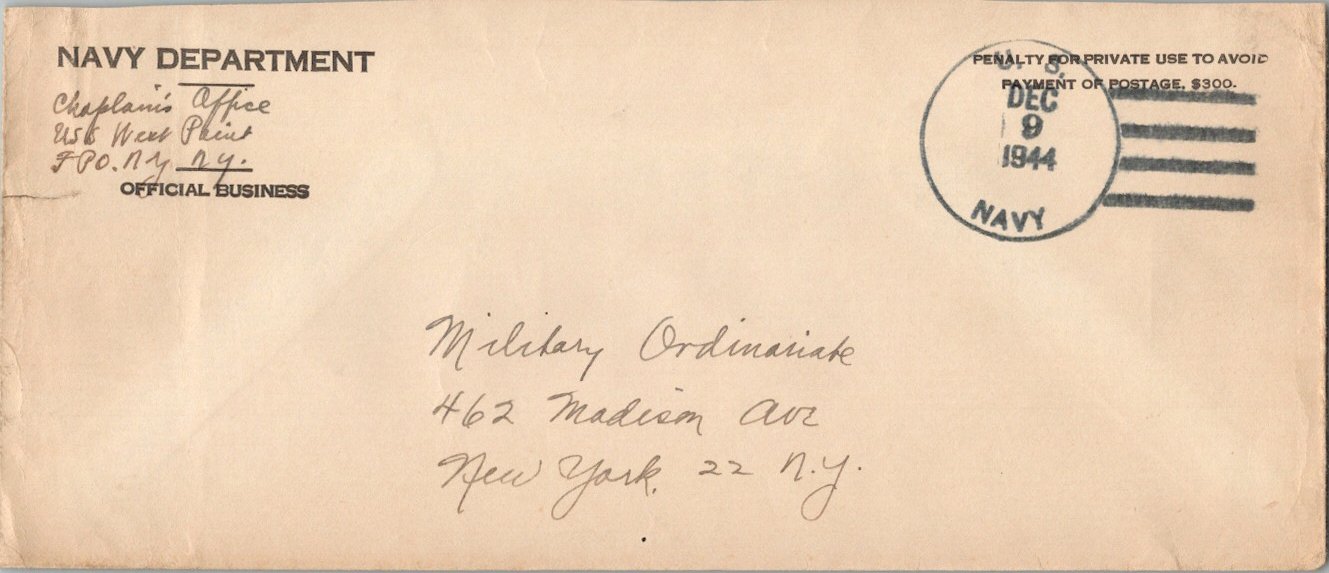 NAVY DEPARTMENT
Chaplain's Office
USS West Point
FPO. NY NY.
OFFICIAL BUSINESS
PENALTY FOR PRIVATE USE TO AVOID
PAYMENT OF POSTAGE, $300.
U. S.
DEC
9
1944
NAVY
Military Ordinariate
462 Madison Ave
New York, 22 N.Y.